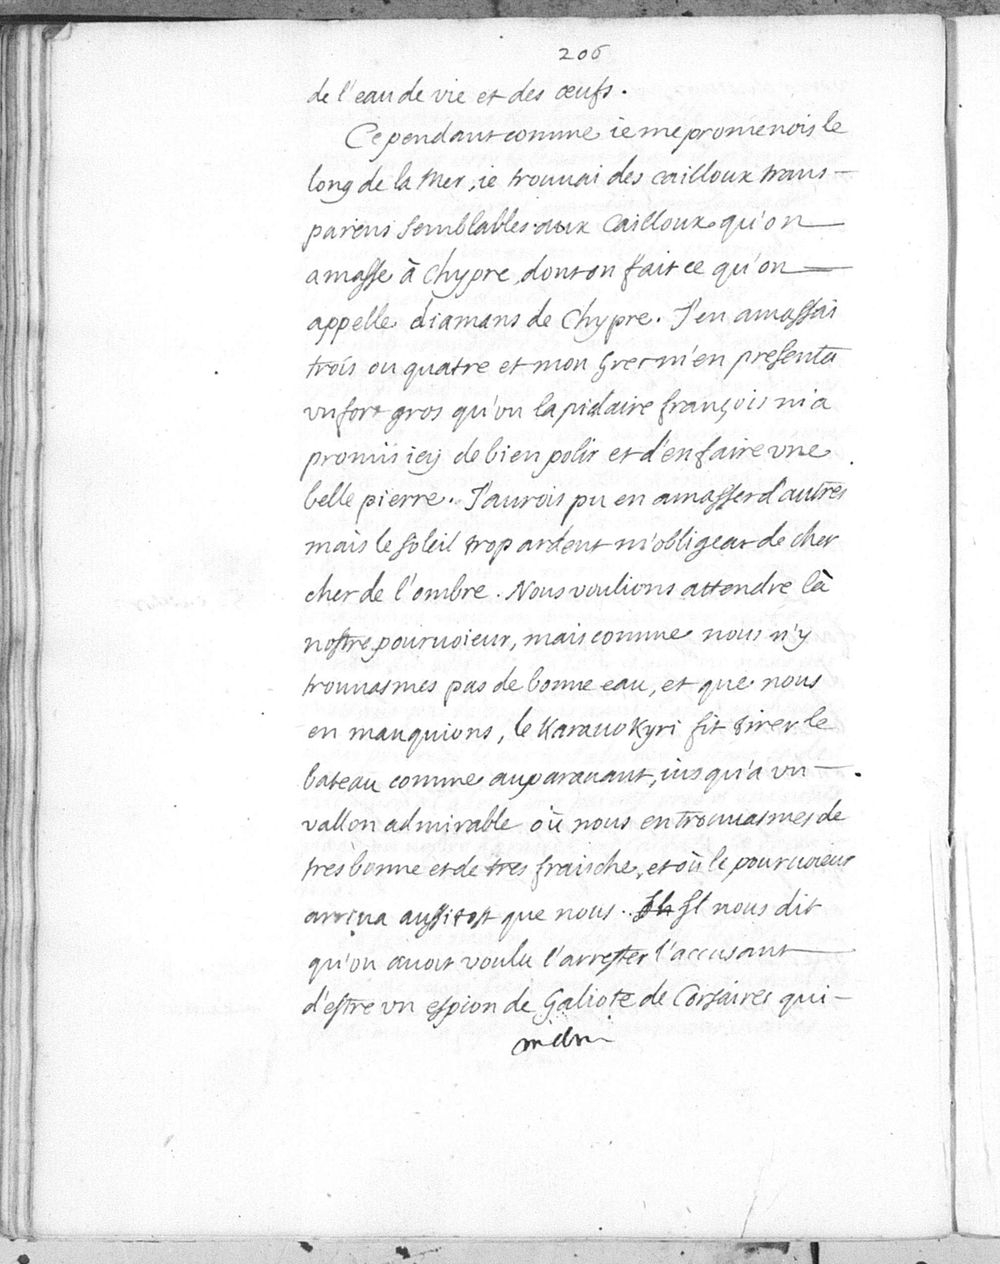 206
de l'eau de vie et des œufs.
Cependant comme ie me promenois le
long de la Mer, ie trouuai des cailloux trans-
parens semblables aux cailloux qu'on
amasse à Chypre, dont on fait ce qu'on
appelle diamans de Chypre. J'en amassai
trois ou quatre et mon Grec m'en presenta
vn fort gros qu'vn lapidaire françois m'a
promis icy de bien polir et d'en faire vne
belle pierre. J'aurois pu en amasser d'autres
mais le soleil trop ardent m'obligeat de cher
cher de l'ombre. Nous voulions attendre là
nostre pouruoieur, mais comme nous n'y
trouuasmes pas de bonne eau, et que nous
en manquions, le Karauokyri fit tirer le
bateau comme auparauant, iusqu'a vn
vallon admirable où nous en trouuasmes de
tres bonne et de tres fraische, et où le pouruoieur
arriua aussitost que nous. Il nous dit
qu'on auoit voulu l'arrester l'accusant
d'estre vn espion de Galiote de Corsaires qui-